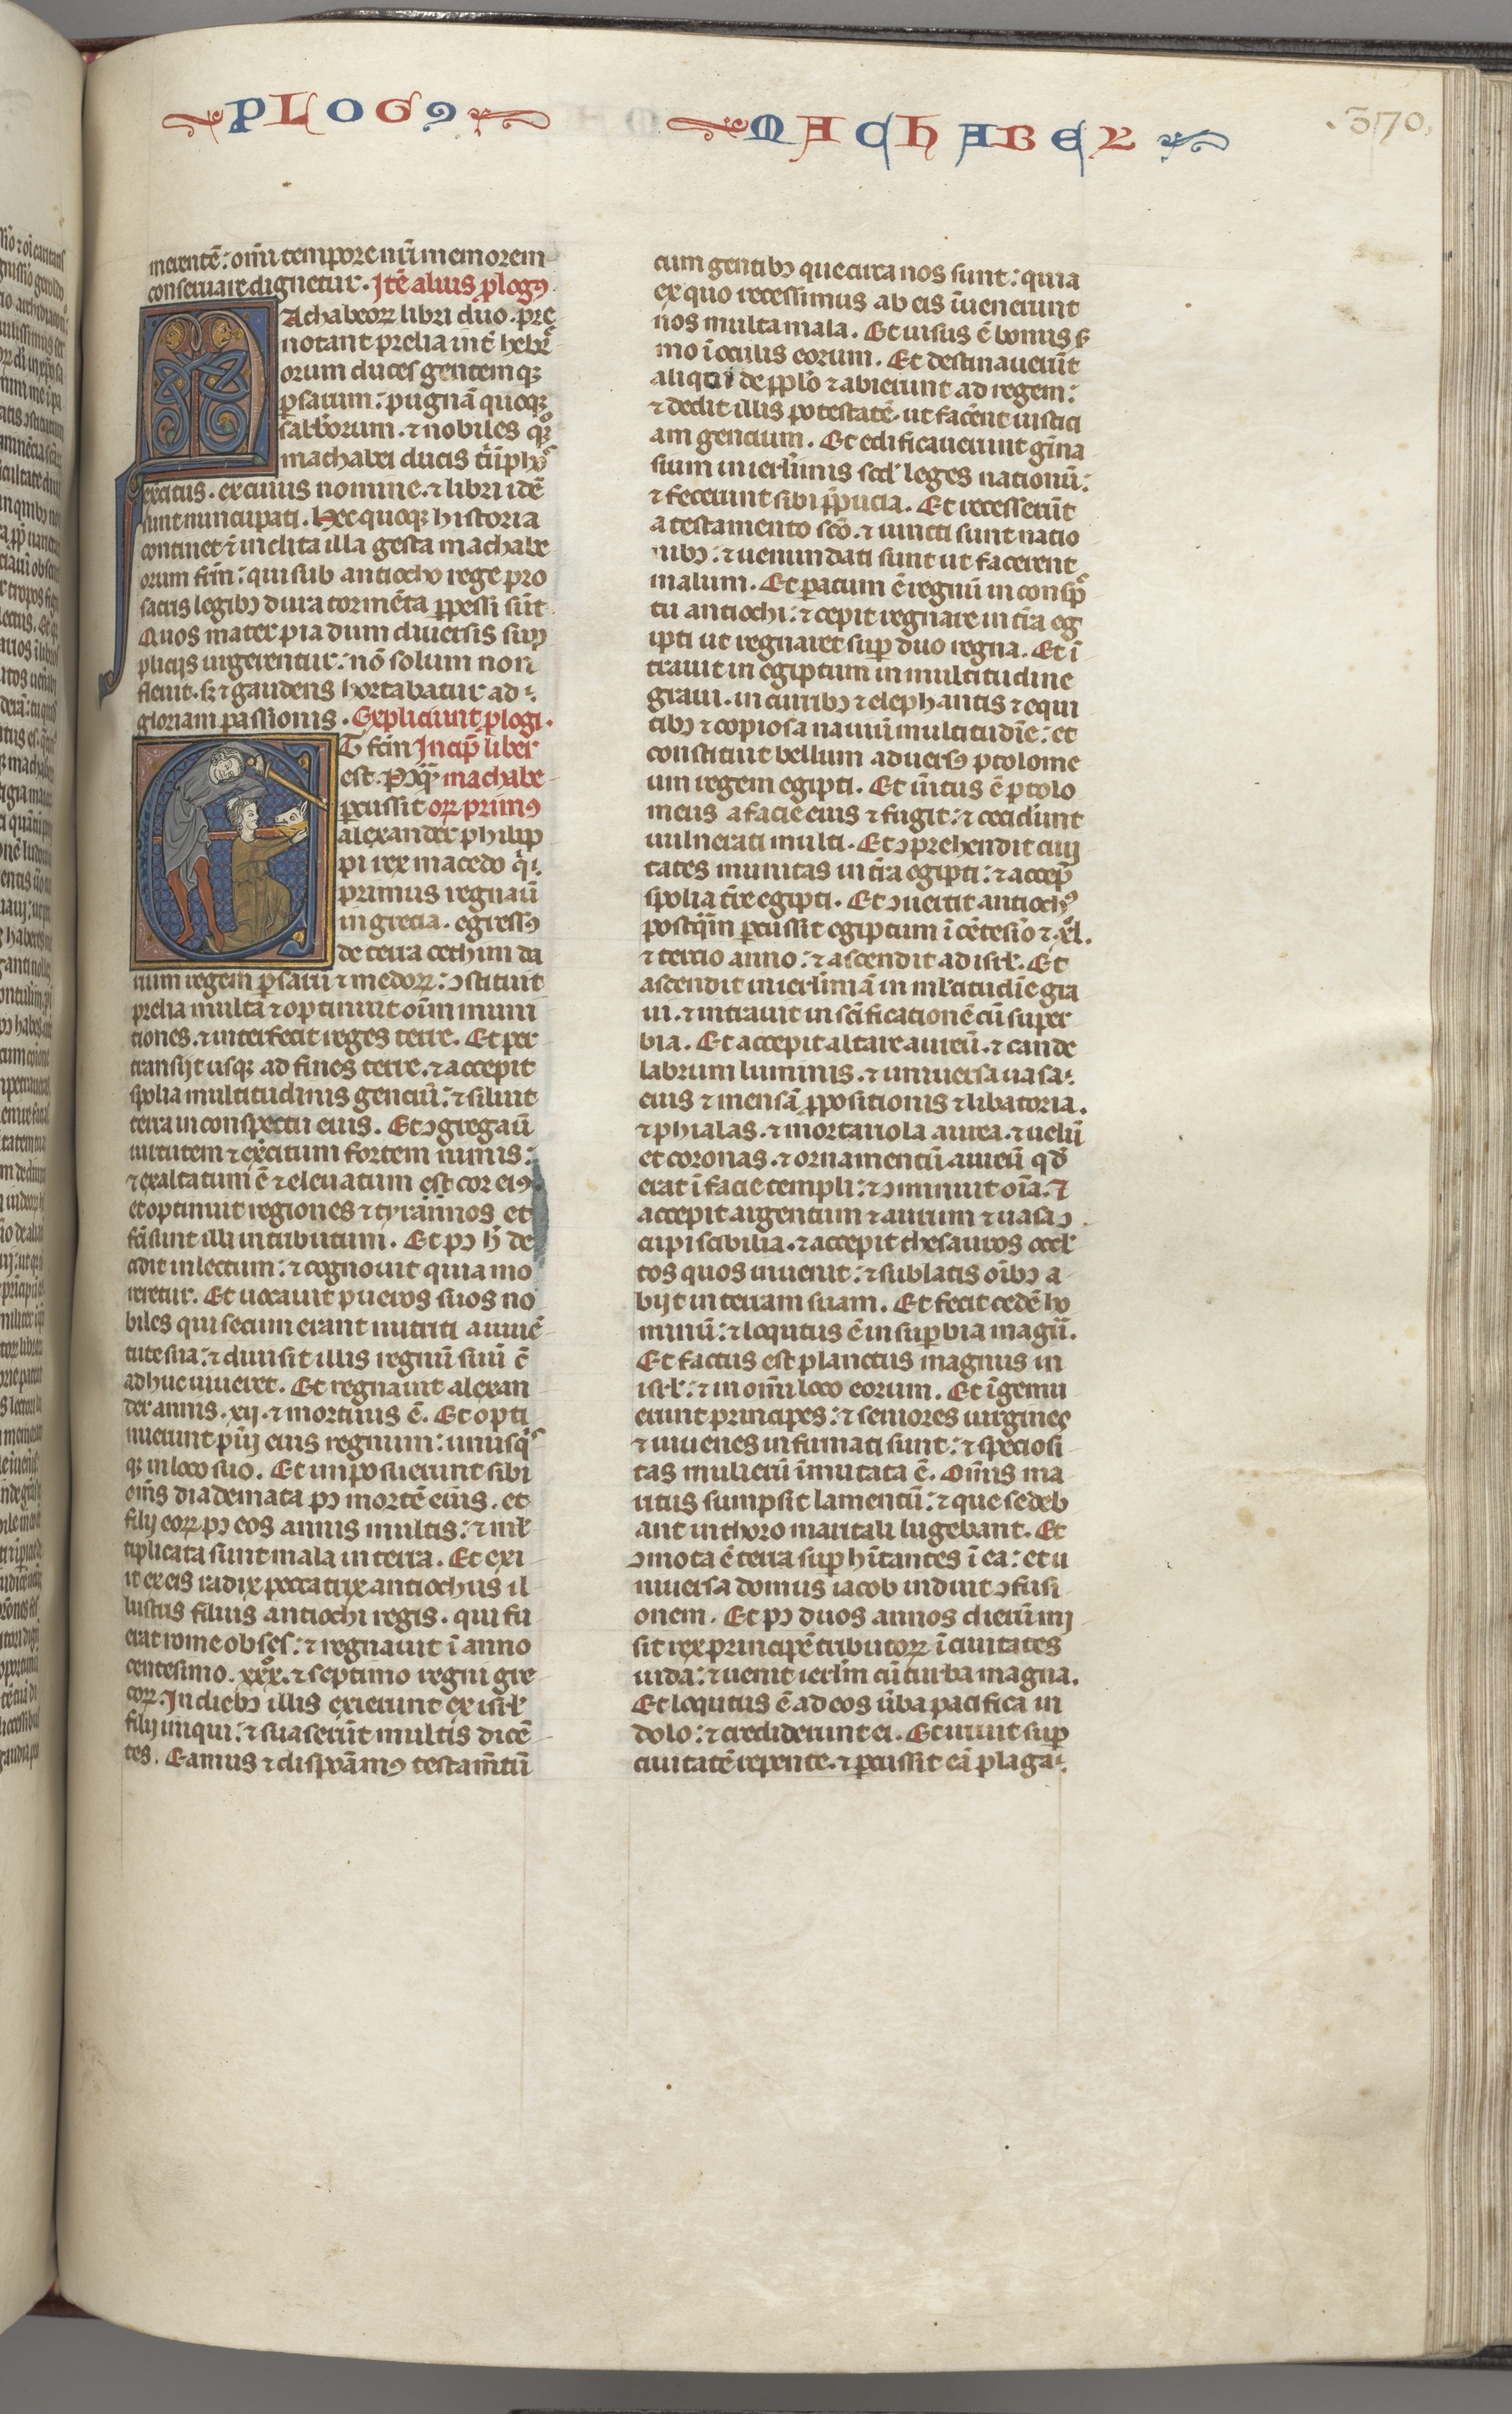 PLOGꝰ MACHABEY
.370.
merentē: om̄i tempore nr̄i memorem
conseruare dignetur. Itē alius ꝓlogꝰ
Achabeoꝝ libri duo. pre
notant prelia int̄ hebre
orum duces gentemqꝫ
ꝑsarum: pugnā quoqꝫ
sabborum. ⁊ nobiles
machabei ducis
exercitus. ex cuius nomine. ⁊ libri idē
sunt nuncupati. Hec quoqꝫ historia
continet ⁊ inclita illa gesta machabe
orum fr̄m: qui sub antiocho rege pro
sacris legibꝫ dira tormēta ꝑpessi sūt
Quos mater pia dum diuersis sup
plicijs urgerentur: nō solum non
fleuit. sꝫ ⁊ gaudens hortabatur ad
gloriam passionis. Expliciunt ꝓlogi.
ET fc̄m Incip̄ liber
est. Pꝰqͣ̄ machabe
ꝑcussit oꝝ primꝰ
alexander philip
pi rex macedo qͥ
primus regnauī
in grecia. egressꝰ
de terra cethim da
rium regem ꝑsarū ⁊ medoꝝ: ↄstituit
prelia multa ⁊ optinuit oīm muni
tiones. ⁊ interfecit reges terre. Et per
transijt usqꝫ ad fines terre. ⁊ accepit
spolia multitudinis genciū: ⁊ siluit
terra in conspectu eius. Et ↄgregauī
uirtutem ⁊ ex̄citum fortem nimis:
⁊ exaltatum ē ⁊ eleuatum est cor eiꝰ
et optinuit regiones ⁊ tyrannos et
fc̄i sunt illi in tributum. Et pꝰ h̄ de
cidit in lectum: ⁊ cognouit quia mo
reretur. Et uocauit pueros suos no
biles qui secum erant nutriti a iuuē
tute sua: ⁊ diuisit illis regnū suū cū
adhuc uiueret. Et regnauit alexan
der annis. xij. ⁊ mortuus ē. Et opti
nuerunt pūi eius regnum: unusqͥs
qꝫ in loco suo. Et inposuerunt sibi
om̄s diademata pꝰ mortē eius. et
filij eoꝝ pꝰ eos annis multis: ⁊ ml̄
tiplicata sunt mala in terra. Et exi
it ex eis radix peccatrix antiochus il
lustris filius antiochi regis. qui fu
erat rome obses: ⁊ regnauit ī anno
centesimo. xxxº. ⁊ septimo regni gre
coꝝ. In diebꝫ illis exierunt ex isrl̄
filij iniqui: ⁊ suaserūt multis dicē
tes. Eamus ⁊ disponāmꝰ testam̄tū
cum gentibꝫ que circa nos sunt: quia
ex quo recessimus ab eis īuenerunt
nos multa mala. Et uisus ē bonus ẜ
mo ī oculis eorum. Et destinauerūt
aliqui de pplo ⁊ abierunt ad regem:
⁊ dedit illis potestatē. ut facēnt iustici
am gencium. Et edificauerunt gīna
sium in ierl̄imis scdꝫ leges nationū:
⁊ fecerunt sibi p̄pucia. Et recesserūt
a testamento scō. ⁊ iuncti sunt natio
nibꝫ: ⁊ uenundati sunt ut facerent
malum. Et paratum ē regnū in consp̄
tu antiochi: ⁊ cepit regnare in t̄ra eg
ipti ut regnaret suꝑ duo regna. Et ī
trauit in egiptum in multitudine
graui. in curribꝫ ⁊ elephantis ⁊ equi
tibꝫ ⁊ copiosa nauiū multitudīe: et
constituit bellum aduersꝰ ptolome
um regem egipti. Et ūitus ē ptolo
meus a facie eius ⁊ fugit: ⁊ ceciderunt
uulnerati multi. Et ↄprehendit ciui
tates munitas in t̄ra egipti: ⁊ accep̄
spolia t̄re egipti. Et ↄuertit antiochꝰ
postqͣ̄m ꝑcussit egiptum ī cētesīo ⁊ xl.
⁊ tercio anno: ⁊ ascendit ad isrl̄. Et
ascendit in ierl̄imā in ml̄titudīe gra
ui. ⁊ intrauit in scīficationē cū super
bia. Et accepit altare aureū. ⁊ cande
labrum luminis. ⁊ uniuersa uasa
eius ⁊ mensā ꝓpositionis ⁊ libatoria.
⁊ phialas. ⁊ mortariola aurea. ⁊ uelū
et coronas. ⁊ ornamentū aureū qd̄
erat ī facie templi: ⁊ ↄminuit oīa. ⁊
accepit argentum ⁊ aurum ⁊ uasa ↄ
cupiscibilia. ⁊ accepit thesauros occl̄
tos quos inuenit: ⁊ sublatis oībꝫ a
bijt in terram suam. Et fecit cedē ho
minū: ⁊ loqutus ē in suꝑbia magna.
Et factus est planctus magnus in
isrl̄: ⁊ in om̄i loco eorum. Et īgemu
erunt principes: ⁊ seniores uirgines
⁊ iuuenes infirmati sunt: ⁊ speciosi
tas mulierū īmutata ē. Om̄is ma
ritus sumpsit lamentū: ⁊ que sedeb
ant in thoro maritali lugebant. Et
ↄmota ē terra suꝑ hītantes ī ea: et u
niuersa domus iacob induit ↄfusi
onem. Et pꝰ duos annos dierū mi
sit rex principē tributoꝝ ī ciuitates
iuda: ⁊ uenit ierl̄m cū turba magna.
Et loqutus ē ad eos ūba pacifica in
dolo: ⁊ crediderunt ei. Et irruit suꝑ
ciuitatē repente. ⁊ ꝑcussit eā plaga